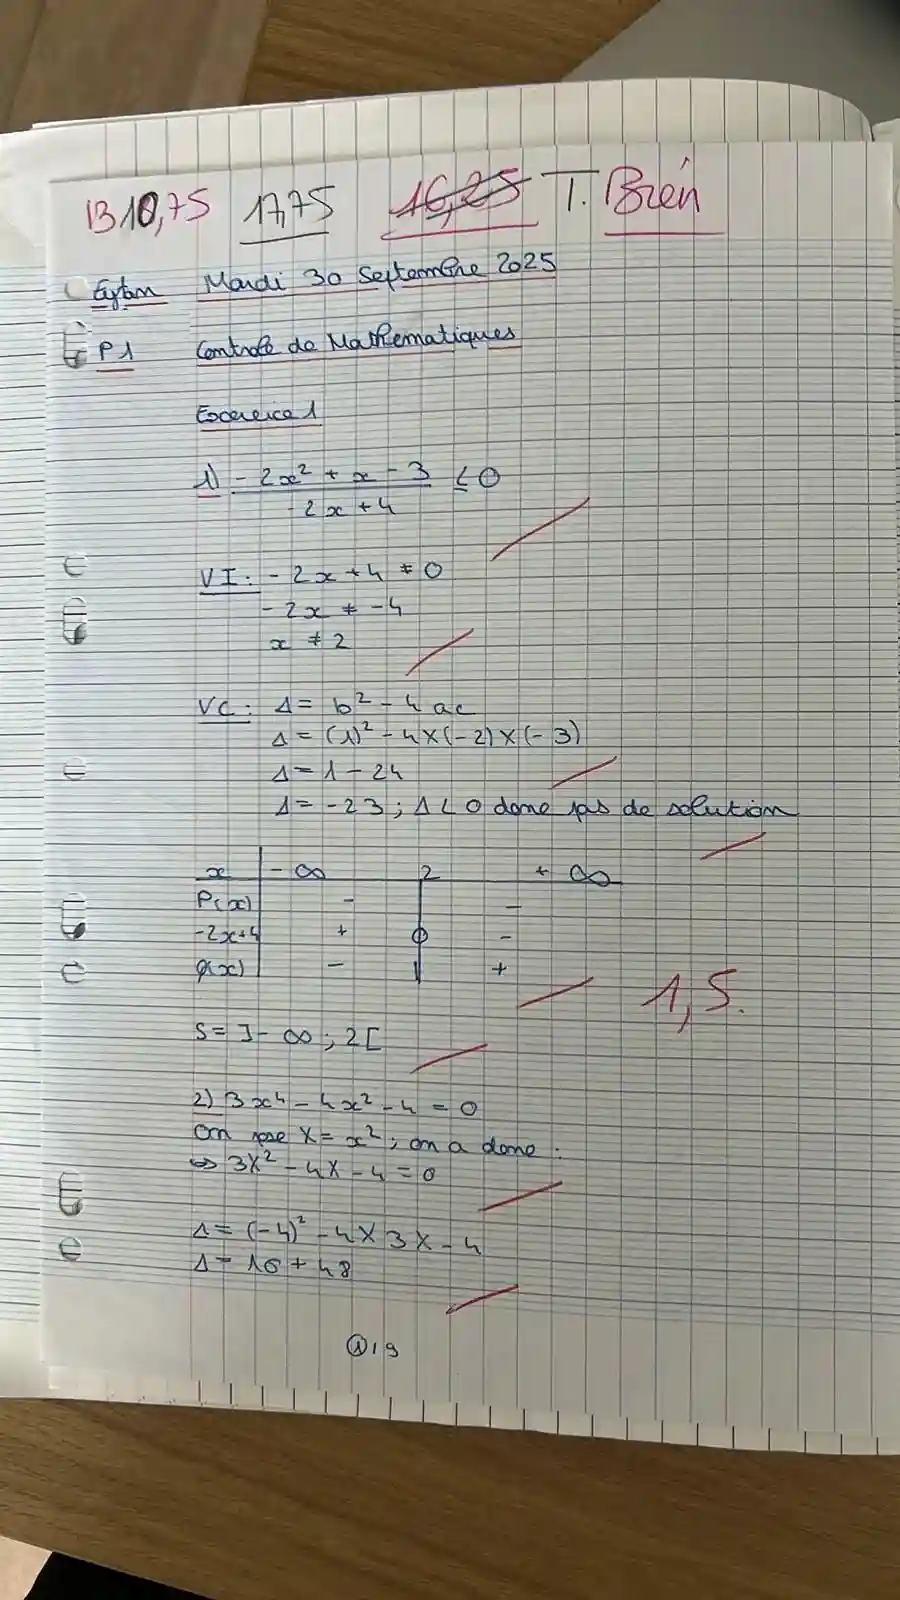 1310,75 17,75 16,25 T. Bién
Eytan Mardi 30 Septembre 2025
P1 Contrôle de Mathématiques
Exercice 1
1) - 2x² + x - 3 ≤ 0
-2x + 4
VI : - 2x + 4 ≠ 0
- 2x ≠ -4
x ≠ 2
VC : Δ = b² - 4ac
Δ = (1)² - 4×(-2)×(-3)
Δ = 1 - 24
Δ = -23 ; Δ < 0 donc pas de solution
x - ∞ 2 + ∞
P(x) - -
-2x+4 + 0 -
Q(x) - +
1,5.
S = ]- ∞ ; 2[
2) 3x⁴ - 4x² - 4 = 0
On pose X = x² ; on a donc :
⇔ 3X² - 4X - 4 = 0
Δ = (-4)² - 4 × 3 × - 4
Δ = 16 + 48
① / 9